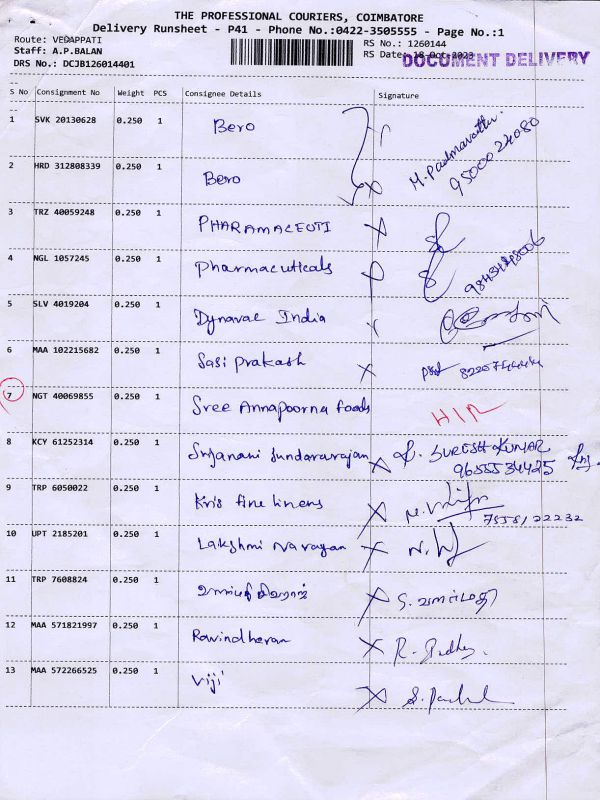 THE PROFESSIONAL COURIERS, COIMBATORE
Delivery Runsheet - P41 - Phone No.:0422-3505555 - Page No.:1
Route: VEDAPPATI RS No.: 1260144
Staff: A.P.BALAN RS Date: 18-Oct-2023 DOCUMENT DELIVERY
DRS No.: DCJB126014401
S No Consignment No Weight PCS Consignee Details Signature
1 SVK 20130628 0.250 1 Bero M. Padmavathi
2 HRD 312808339 0.250 1 Bero
3 TRZ 40059248 0.250 1 PHARAMACEUTI
4 NGL 1057245 0.250 1 pharmacuticals
5 SLV 4019204 0.250 1 Dynavac India
6 MAA 102215682 0.250 1 Sasi prakash
7 NGT 40069855 0.250 1 Sree Annapoorna foods
8 KCY 61252314 0.250 1 Srijanani Sundararajan SURESH KUMAR
9655534425
9 TRP 6050022 0.250 1 Kris fine liners
10 UPT 2185201 0.250 1 Lakshmi Narayan
11 TRP 7608824 0.250 1
12 MAA 571821997 0.250 1 Ravindheran
13 MAA 572266525 0.250 1 Viji